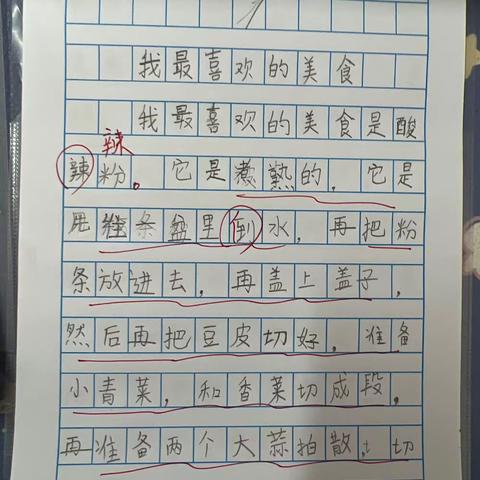 我最喜欢的美食
我最喜欢的美食是酸
辣
辣粉。它是煮熟的。它是
用往条盆里倒水，再把粉
条放进去，再盖上盖子，
然后再把豆皮切好。准备
小青菜，和香菜切成段，
再准备两个大蒜拍散，切